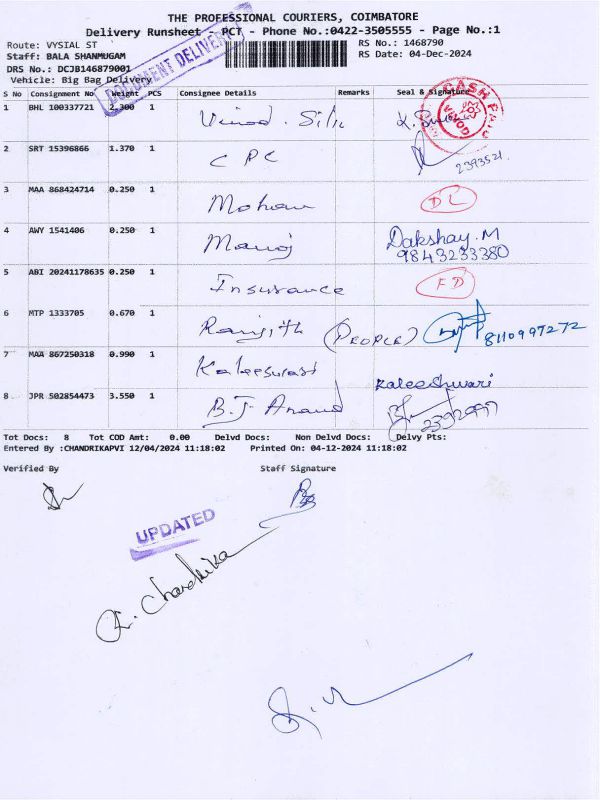 THE PROFESSIONAL COURIERS, COIMBATORE
Delivery Runsheet - PCT - Phone No.:0422-3505555 - Page No.:1
Route: VYSIAL ST RS No.: 1468790
Staff: BALA SHANMUGAM RS Date: 04-Dec-2024
DRS No.: DCJB146879001
Vehicle: Big Bag Delivery
DOCUMENT DELIVERY
S No Consignment No Weight PCS Consignee Details Remarks Seal & Signature
1 BHL 100337721 2.300 1 Vinod . Silk
2 SRT 15396866 1.370 1 CPC 2393521
3 MAA 868424714 0.250 1 Mohan DL
4 AWY 1541406 0.250 1 Manoj Dakshay.M
9843233380
5 ABI 20241178635 0.250 1 Insurance FD
6 MTP 1333705 0.670 1 Ranjith (PEOPLE) 8110997272
7 MAA 867250318 0.990 1 Kaleeswari Kaleeshwari
8 JPR 502854473 3.550 1 B.J. Anand 2392977
Tot Docs: 8 Tot COD Amt: 0.00 Delvd Docs: Non Delvd Docs: Delvy Pts:
Entered By :CHANDRIKAPVI 12/04/2024 11:18:02 Printed On: 04-12-2024 11:18:02
Verified By Staff Signature
UPDATED
Chandrika